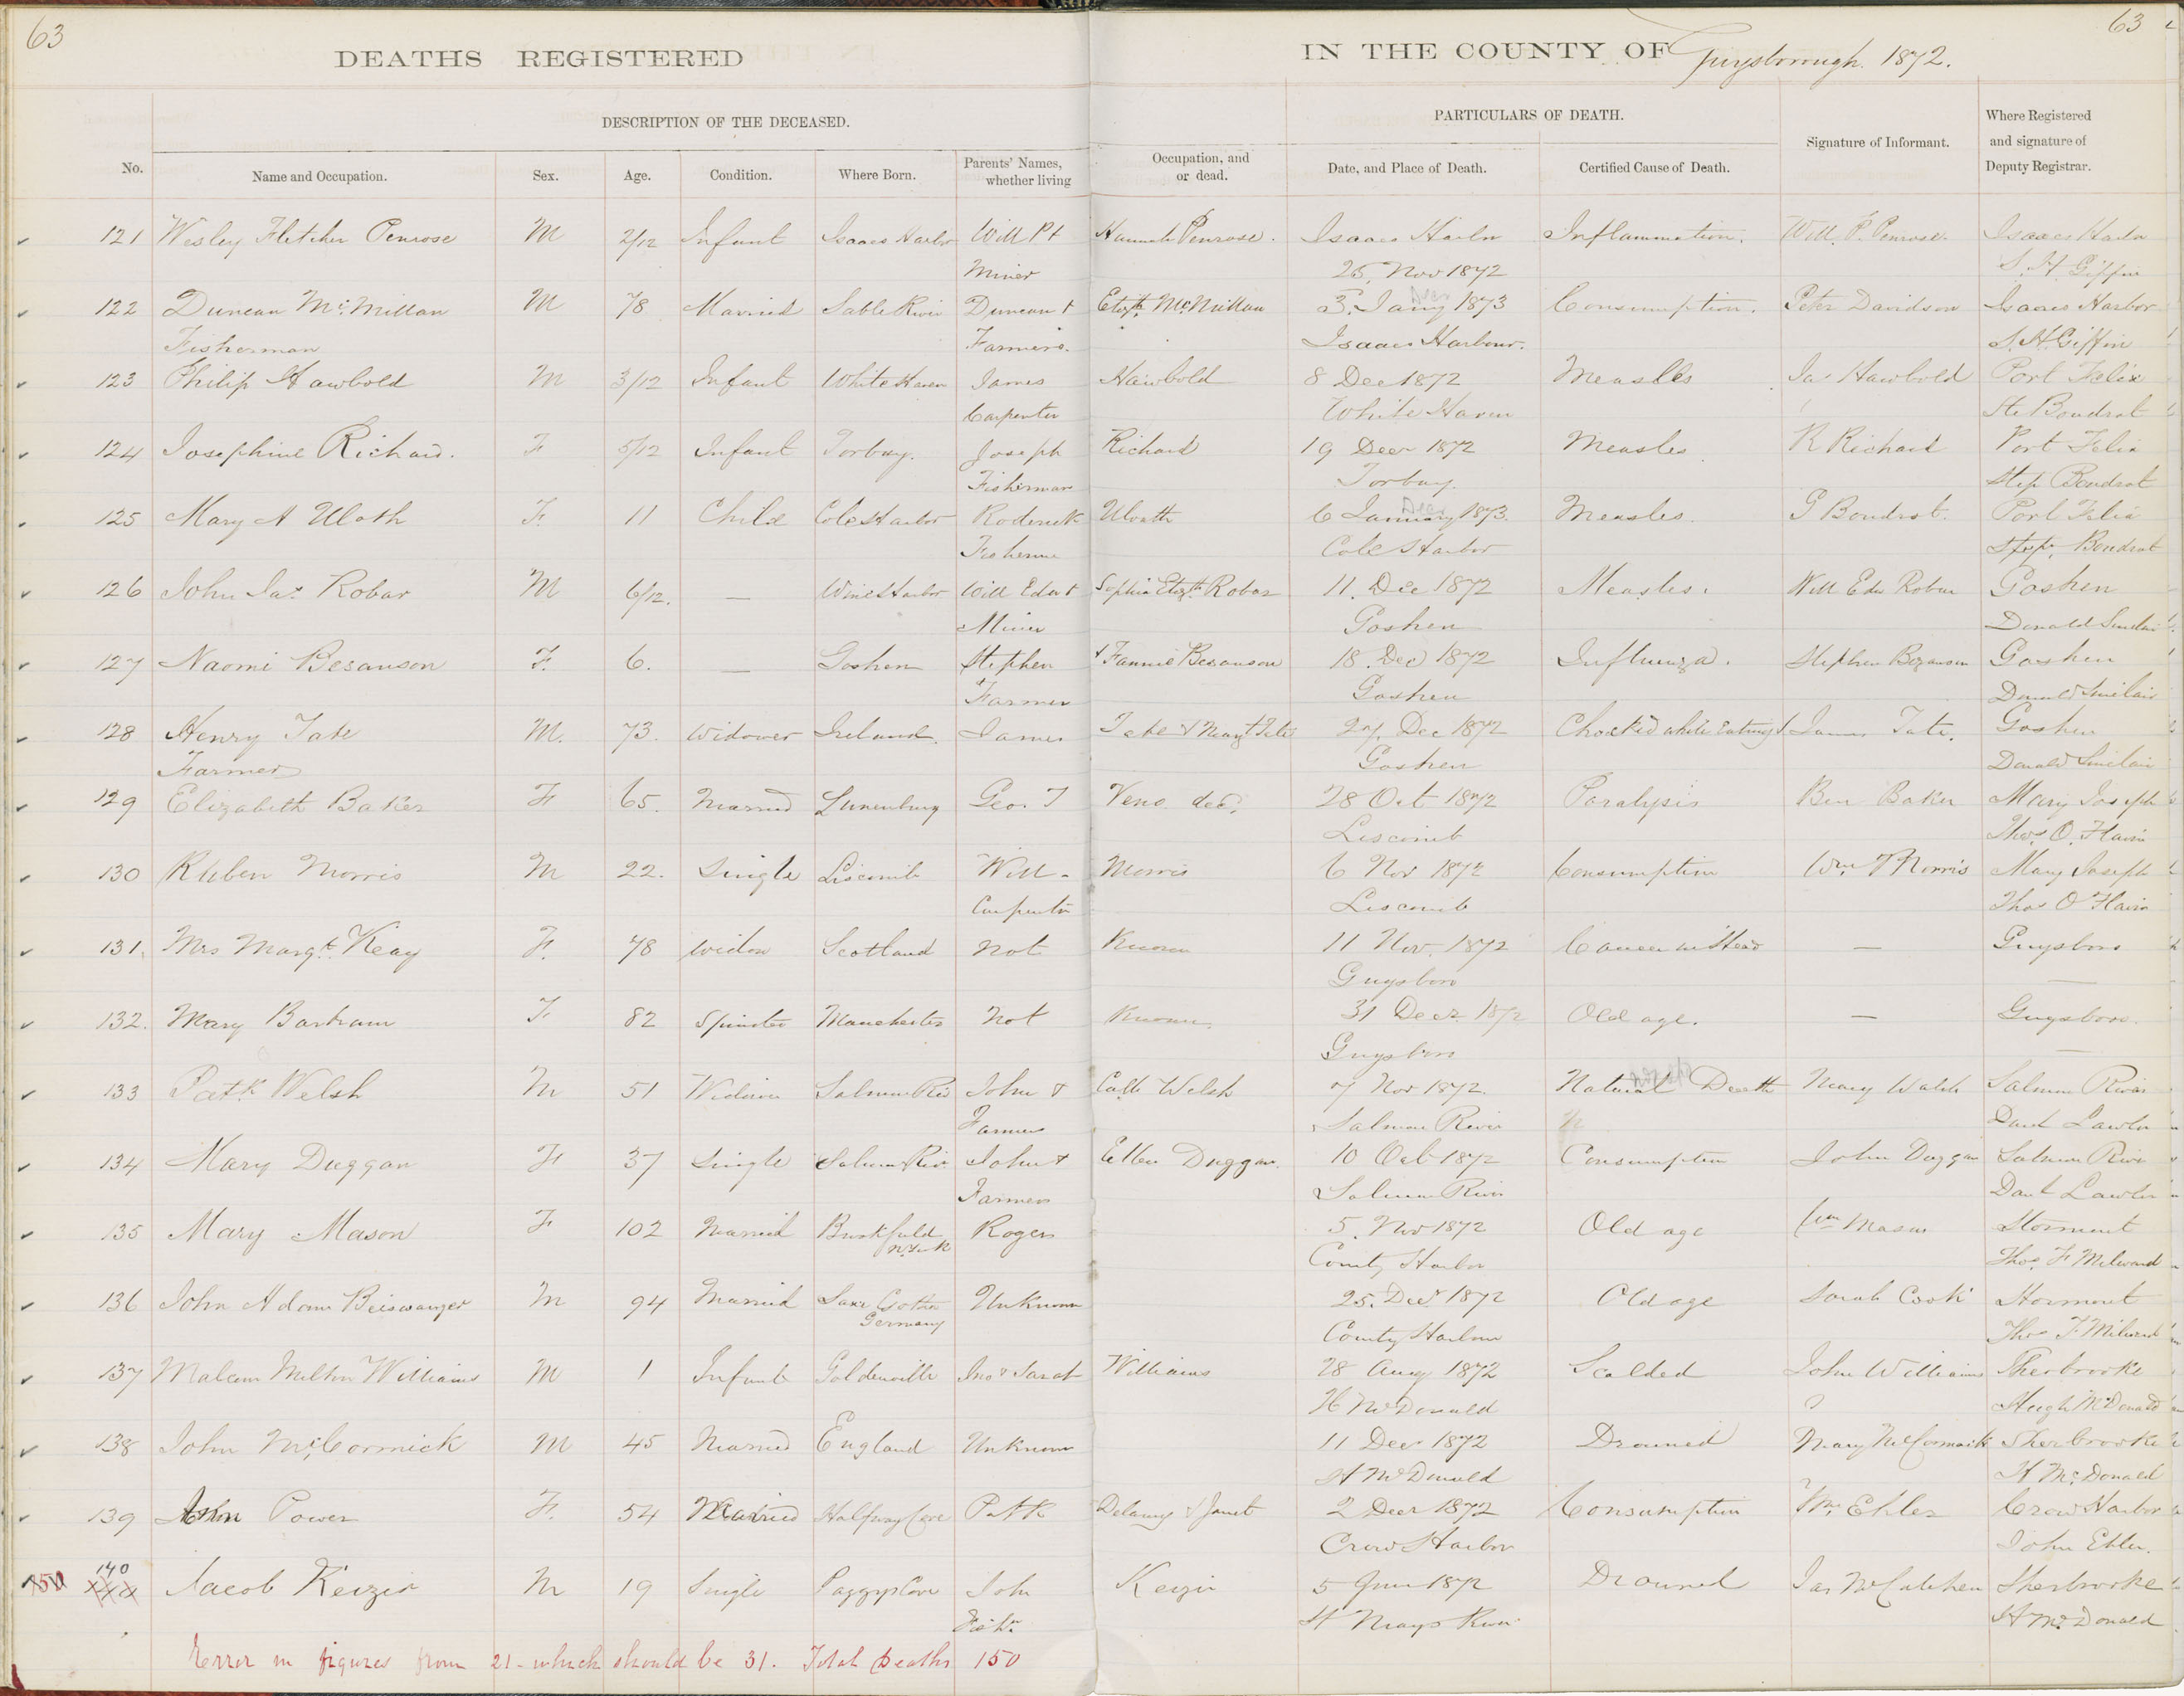 63
63
DEATHS REGISTERED IN THE COUNTY OF Guysborough. 1872.
DESCRIPTION OF THE DECEASED.
PARTICULARS OF DEATH.
No. Name and Occupation. Sex. Age. Condition. Where Born. Parents' Names, whether living Occupation, and or dead. Date, and Place of Death. Certified Cause of Death. Signature of Informant. Where Registered and signature of Deputy Registrar.
121 Wesley Fletcher Penrose M 2/12 Infant Isaacs Harbor Will P + Hannah Penrose. Isaacs Harbor Inflammation. Will. P. Penrose. Isaacs Harbor
Miner 25 Nov 1872 S. H Giffin
122 Duncan Mc.Millan M 78 Married Sable River Duncan + Elizth McMillan 3. Jany 1873 Consumption. Peter Davidson Isaacs Harbor
Fisherman Farmers. Isaacs Harbour. S. H. Giffin
123 Philip Hawbold M 3/12 Infant White Haven James Hawbold 8 Dec 1872 Measles Jas Hawbold Port Felix
Carpenter White Haven Ste Boudrot
124 Josephine Richard. F 5/12 Infant Torbay. Joseph Richard 19 Decr 1872 Measles R Richard Port Felix
Fisherman Torbay. Step Boudrot
125 Mary A Uloth F. 11 Child Coles Harbor Roderick Uloth 6 January 1873. Measles. G Boudrot. Port Felix
Cole Harbor Step. Boudrot
126 John Jas. Robar M 6/12. — Wine Harbor Will Edwd + Sophia Elizth Robar 11. Dec 1872 Measles. Will Edw Robar Goshen
Miner Goshen Donald Sinclair
127 Naomi Besanson F. 6. — Goshen Stephen + Fannie Besanson 18. Dec 1872 Influenza. Stephen Bezanson Goshen
Farmer Goshen Donald Sinclair
128 Henry Tate M. 73. Widower Ireland. James Tate + Margt Tate 27, Dec 1872 Chocked while Eating James Tate. Goshen
Farmer Goshen Donald Sinclair
129 Elizabeth Baker F 65. Married Lunenburg Geo. T Veno. decd. 28 Oct 1872 Paralysis Ben Baker Mary Joseph
Liscomb Thos. O. Flavin
130 Ruben Morris M 22. Single Liscomb Will Morris 6 Nov 1872 Consumption Wm T Morris Mary Joseph
Carpenter Liscomb Thos O Flavin
131. Mrs Margt. Keay F. 78 Widow Scotland Not Known 11 Nov. 1872 Cancer in Head — Guysboro
Guysboro —
132. Mary Bartram F. 82 Spinster Manchester Not Known. 31 Decr. 1872 Old age. — Guysboro.
Guysboro —
133 Patk Welsh M 51 Widower Salmon Riv John + Cath Welsh 7 Nov 1872. Natural Death Mary Walsh Salmon River
Farmer Salmon River Danl Lawlor
134 Mary Duggan F 37 Single Salmon Riv John + Ellen Duggan. 10 Oct 1872 Consumption John Duggan Salmon River
Farmers Salmon River Danl Lawlor
135 Mary Mason F 102 Married N. York Rogers 5. Nov 1872 Old age Wm Mason Stormont
County Harbor Thos. F Milward
136 John Adam Beiswanger M 94 Married Saxe Gotha Unknown 25. Decr 1872 Old age Sarah Cook Stormont
Germany County Harbour Thos F. Milward
137 Malcum Milton Williams M 1 Infant Goldenville Jno + Sarah Williams 28 Aug 1872 Scalded John Williams Sherbrooke
H McDonald Hugh McDonald
138 John Mc.Cormick M 45 Married England Unknown 11 Decr 1872 Drowned Mary McCormick Sherbrooke
H McDonald H Mc.Donald
139 Power F. 54 Married Halfway Cove Patk Delaney + Janet 2 Decr 1872 Consumption Wm. Ehler Crow Harbor
Crow Harbor John Ehler.
150 140 Jacob Keizir M 19 Single Paggys Cove John Keizir 5 June 1872 Drowned Jas McCutchen Sherbrooke
Fishn. St Marys River H McDonald
Error in figures from 21 - which should be 31. Total Deaths 150